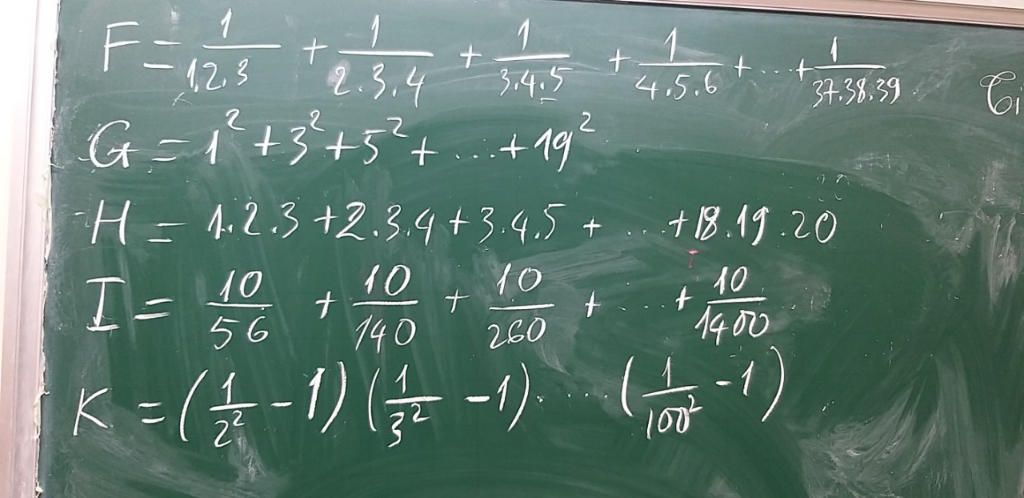 F = 1/1.2.3 + 1/2.3.4 + 1/3.4.5 + 1/4.5.6 + ... + 1/37.38.39
G = 1² + 3² + 5² + ... + 19²
H = 1.2.3 + 2.3.4 + 3.4.5 + ... + 18.19.20
I = 10/56 + 10/140 + 10/260 + ... + 10/1400
K = (1/2² - 1)(1/3² - 1)....(1/100² - 1)